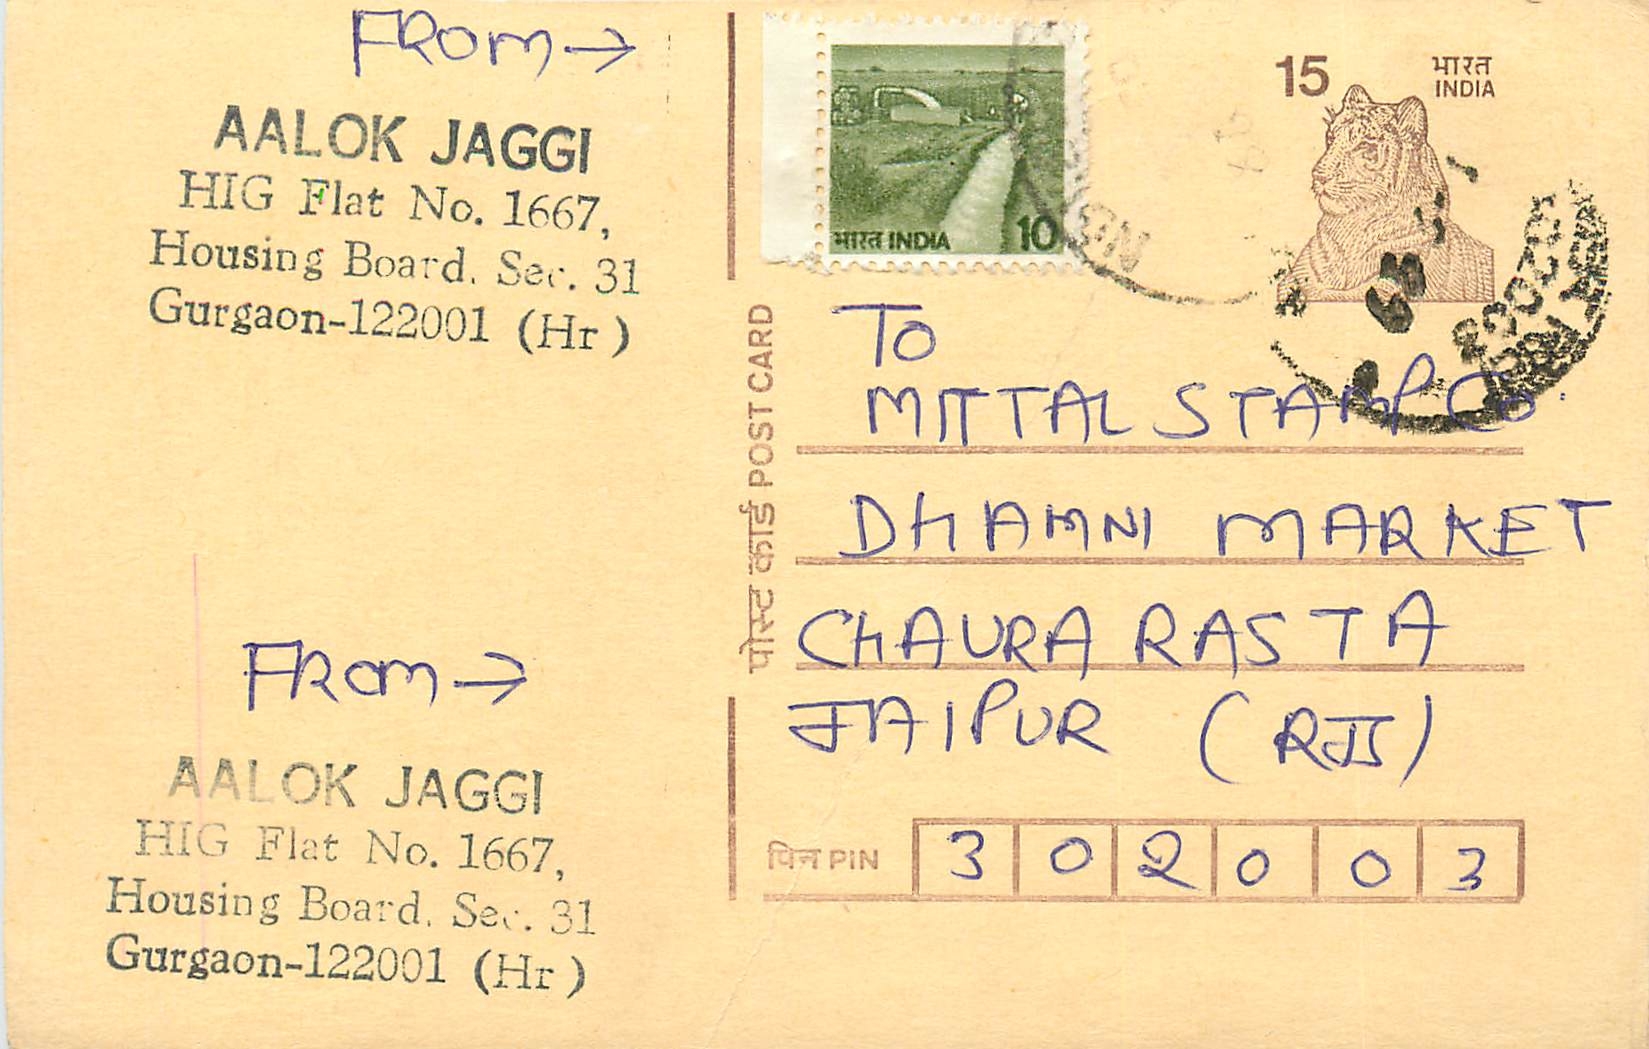 FROM →
AALOK JAGGI
HIG Flat No. 1667,
Housing Board. Sec. 31
Gurgaon-122001 (Hr)
FROM →
AALOK JAGGI
HIG Flat No. 1667,
Housing Board. Sec. 31
Gurgaon-122001 (Hr)
पोस्ट कार्ड POST CARD
भारत INDIA 10
15 भारत
INDIA
TO
MITTAL STAMP Co.
DHAMNI MARKET
CHAURA RASTA
JAIPUR (RJ)
पिन PIN 3 0 2 0 0 3
302003